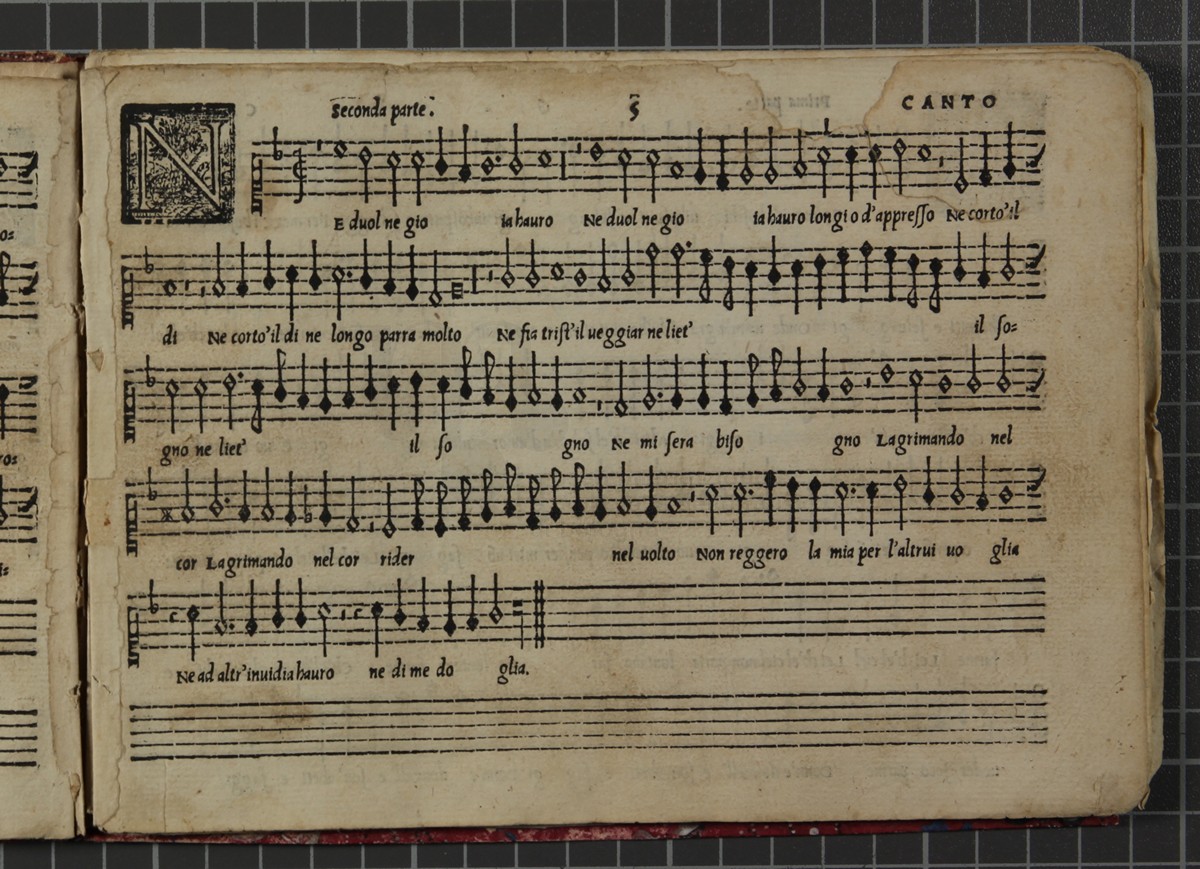 Seconda parte. 5 CANTO
N
E duol ne gio ia hauro Ne duol ne gio ia hauro longi o d'appresso Ne corto'il
di Ne corto'il di ne longo parra molto Ne fia trist'il ueggiar ne liet' il so=
gno ne liet' il so gno Ne mi sera biso gno Lagrimando nel
cor Lagrimando nel cor rider nel uolto Non reggero la mia per l'altrui uo glia
Ne ad altr'inuidia hauro ne di me do glia.